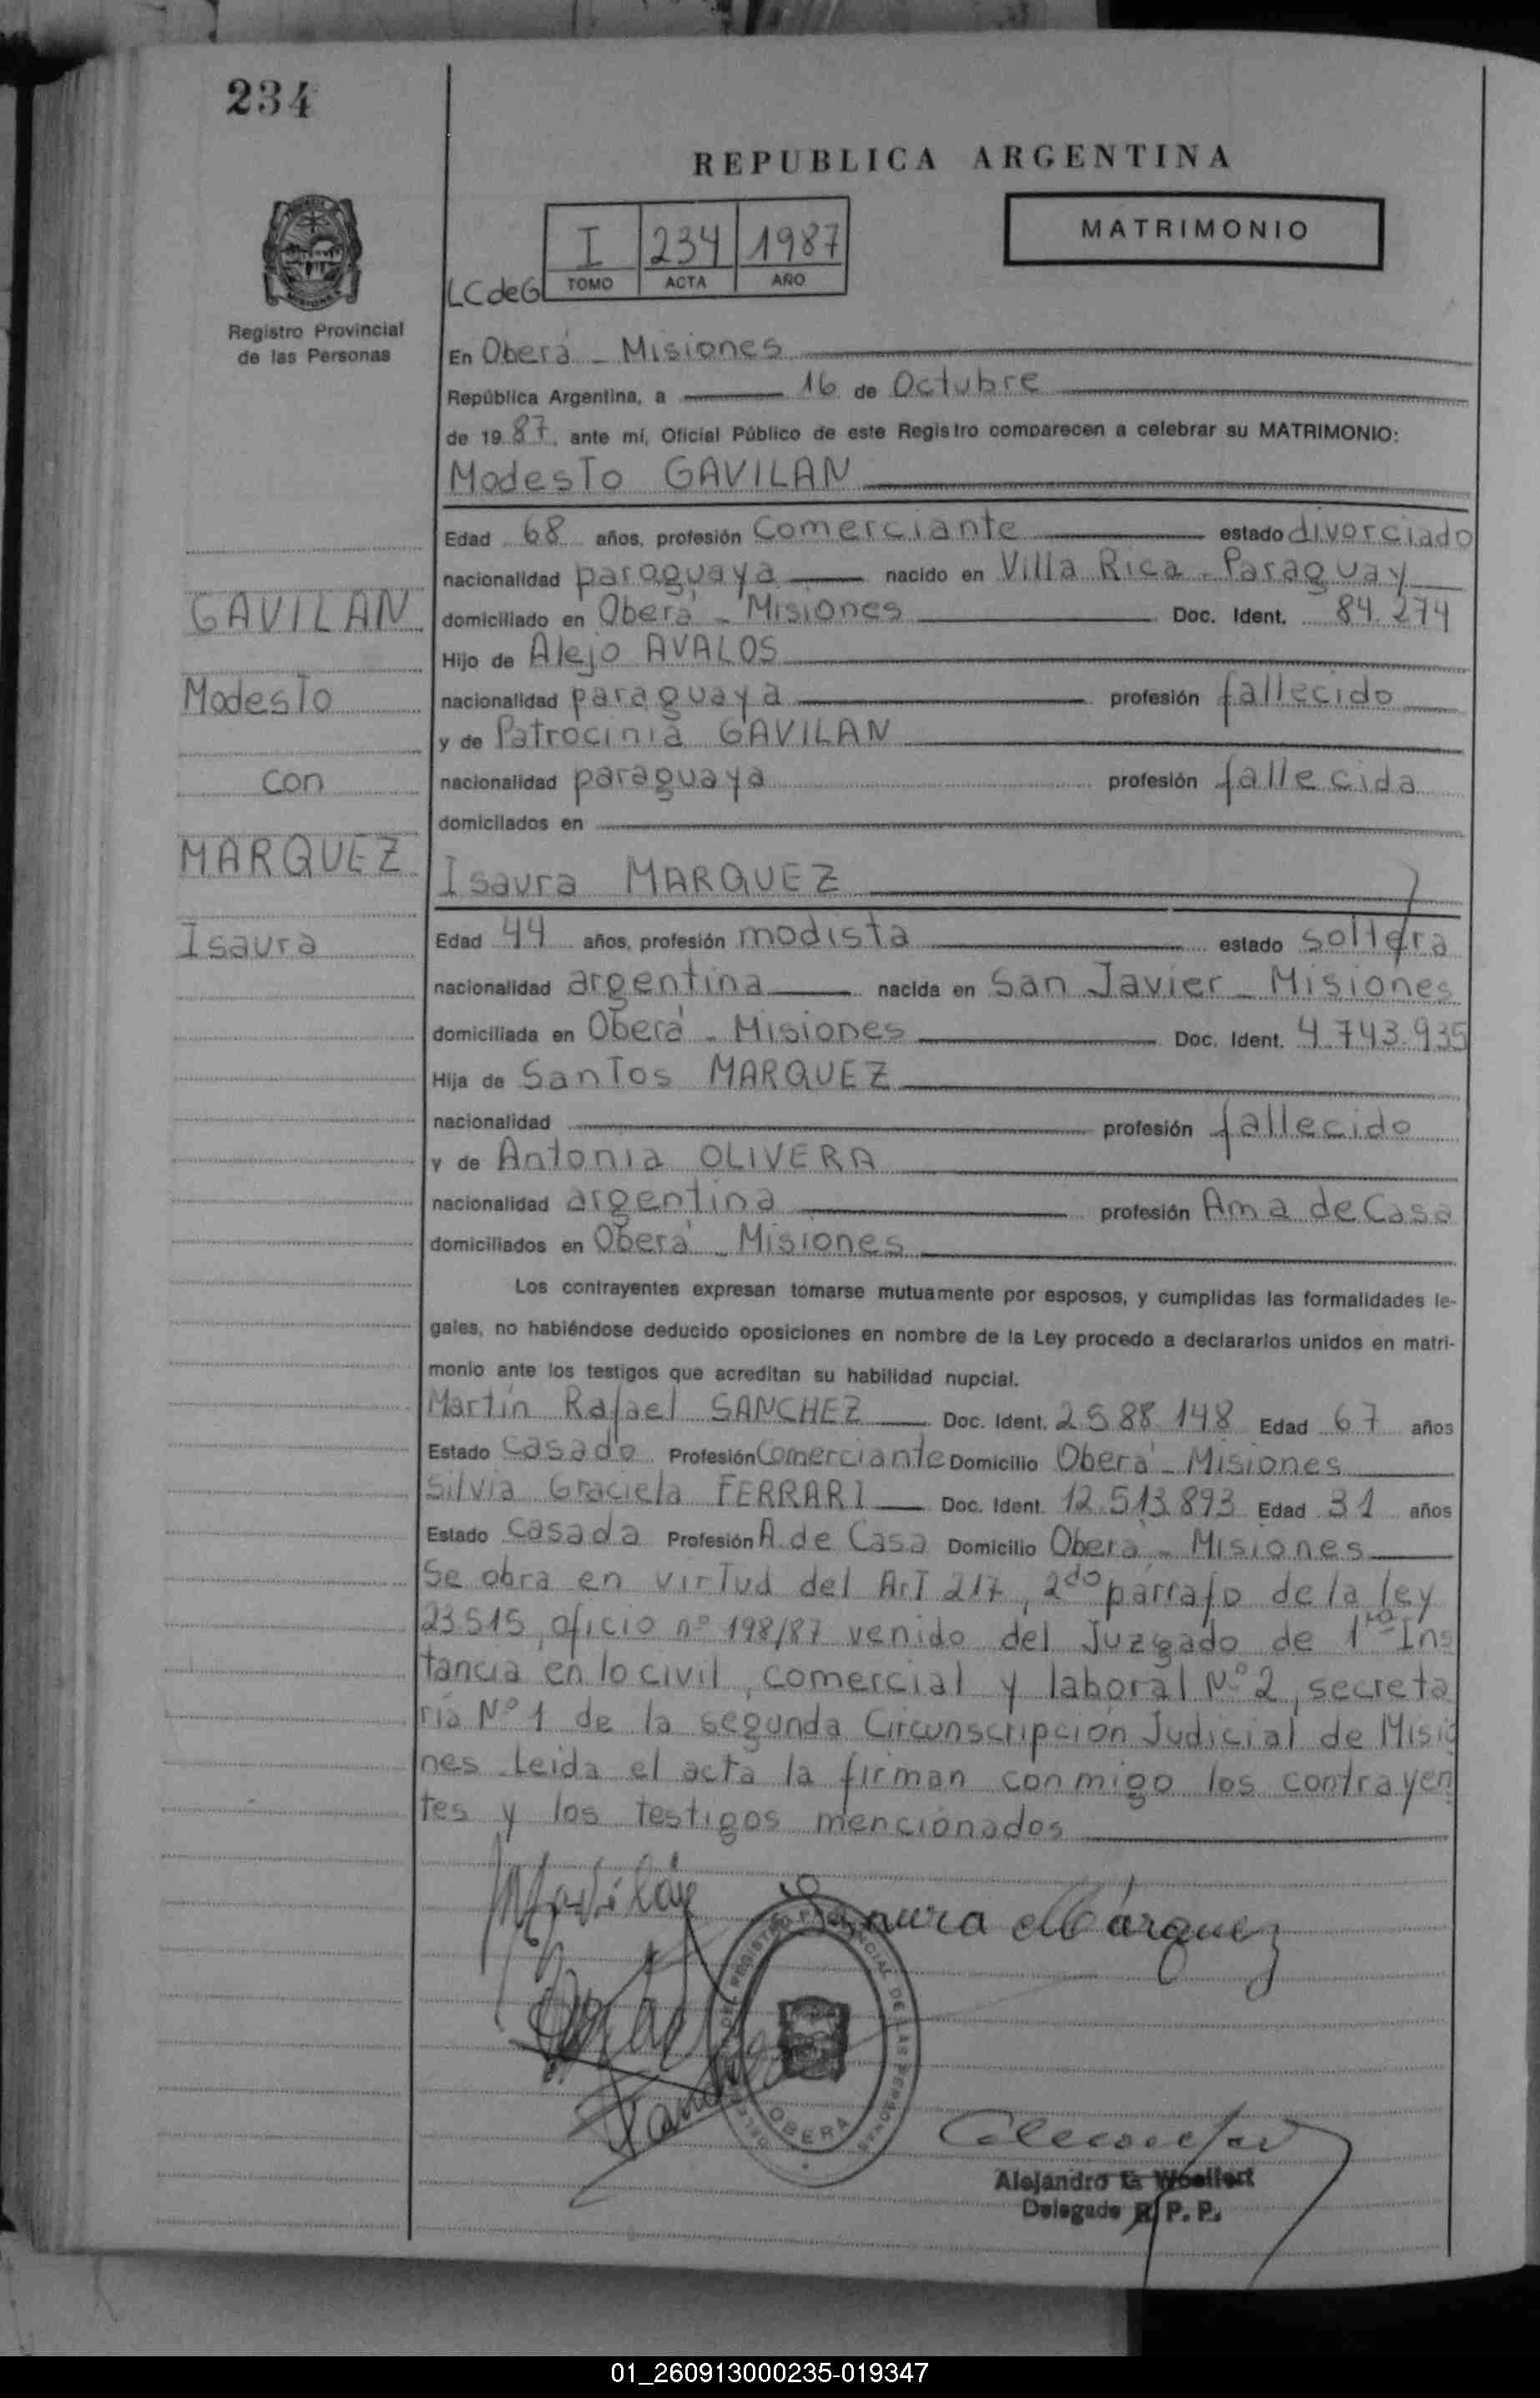 234
REPUBLICA ARGENTINA
MATRIMONIO
I 234 1987
LCdeG TOMO ACTA AÑO
Registro Provincial
de las Personas
En Oberá - Misiones
República Argentina, a 16 de Octubre
de 1987, ante mí, Oficial Público de este Registro comparecen a celebrar su MATRIMONIO:
Modesto GAVILAN
Edad 68 años, profesión Comerciante estado divorciado
nacionalidad paraguaya nacido en Villa Rica - Paraguay
GAVILAN
domiciliado en Oberá - Misiones Doc. Ident. 84.274
Hijo de Alejo AVALOS
Modesto
nacionalidad paraguaya profesión fallecido
y de Patrocinia GAVILAN
con
nacionalidad paraguaya profesión fallecida
domicilados en
MARQUEZ
Isaura MARQUEZ
Isaura
Edad 44 años, profesión modista estado soltera
nacionalidad argentina nacida en San Javier - Misiones
domiciliada en Oberá - Misiones Doc. Ident. 4.743.935
Hija de Santos MARQUEZ
nacionalidad profesión fallecido
y de Antonia OLIVERA
nacionalidad argentina profesión Ama de Casa
domiciliados en Oberá - Misiones
Los contrayentes expresan tomarse mutuamente por esposos, y cumplidas las formalidades le-
gales, no habiéndose deducido oposiciones en nombre de la Ley procedo a declararlos unidos en matri-
monio ante los testigos que acreditan su habilidad nupcial.
Martín Rafael SANCHEZ Doc. Ident. 2588.148 Edad 67 años
Estado Casado Profesión Comerciante Domicilio Oberá - Misiones
Silvia Graciela FERRARI Doc. Ident. 12.513.893 Edad 31 años
Estado Casada Profesión A. de Casa Domicilio Oberá - Misiones
Se obra en virtud del Art 217, 2do párrafo de la ley
23515, oficio nº 198/87 venido del Juzgado de 1ra Ins
tancia en lo civil, comercial y laboral Nº 2, secreta
ría Nº 1 de la segunda Circunscripción Judicial de Misio
nes. Leída el acta la firman conmigo los contrayen
tes y los testigos mencionados
MGavilán
Isaura Márquez
OBERA
Alejandro
Delegado R. P. P.
01_260913000235-019347